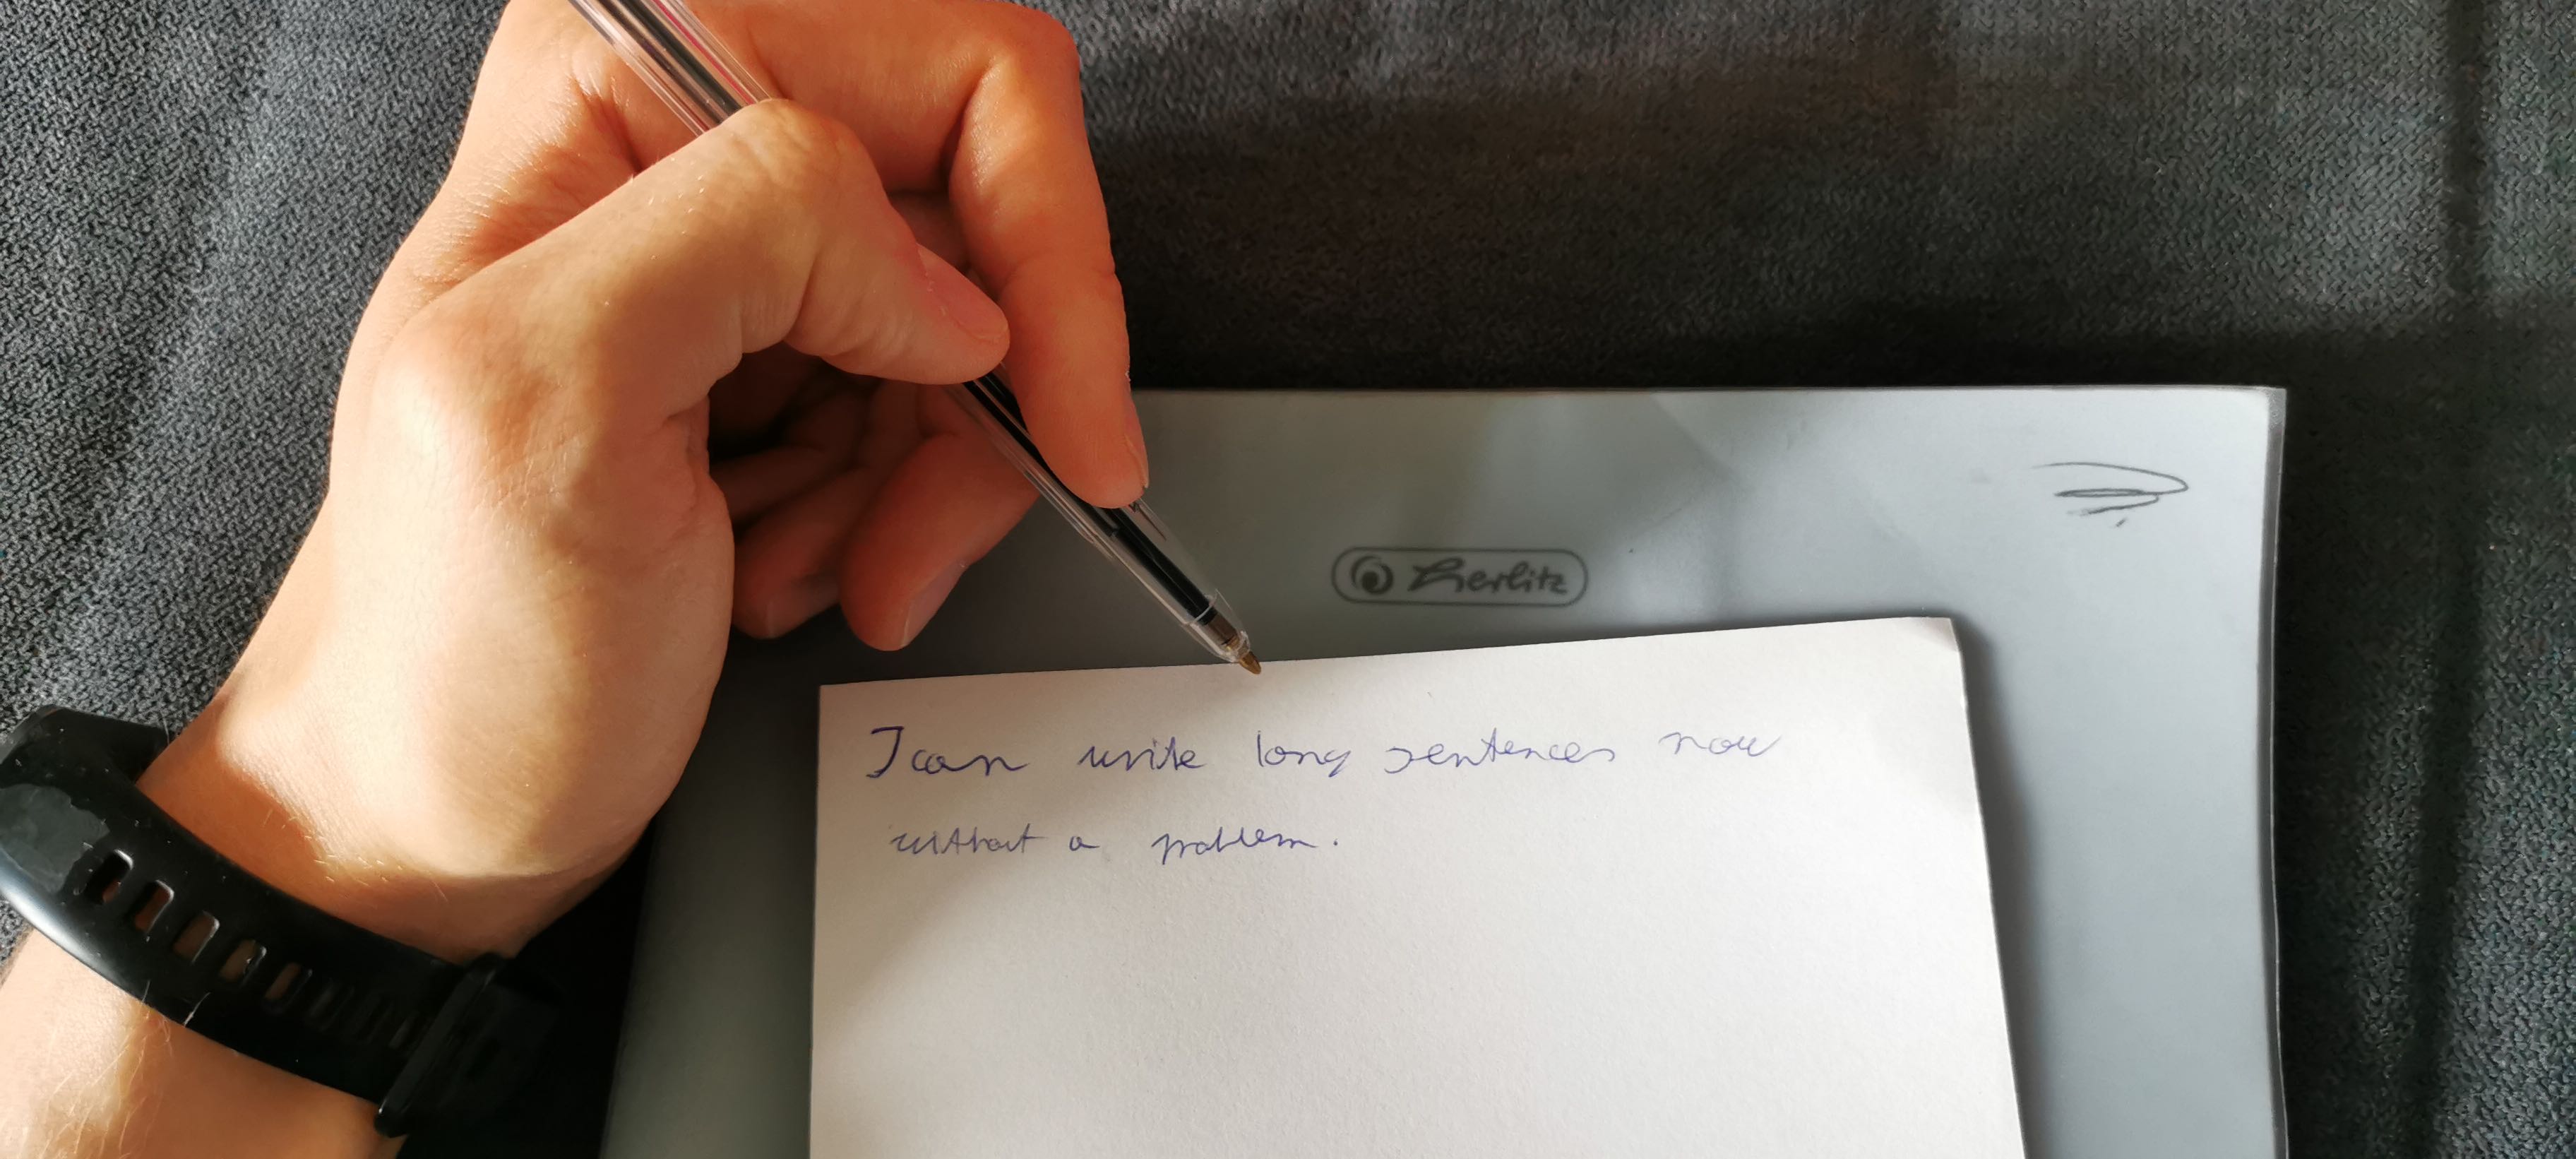 Herlitz
I can write long sentences now
without a problem.